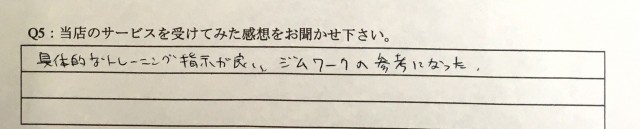 Q5：当店のサービスを受けてみた感想をお聞かせ下さい。
具体的なトレーニング指示が良い、ジムワークの参考になった。